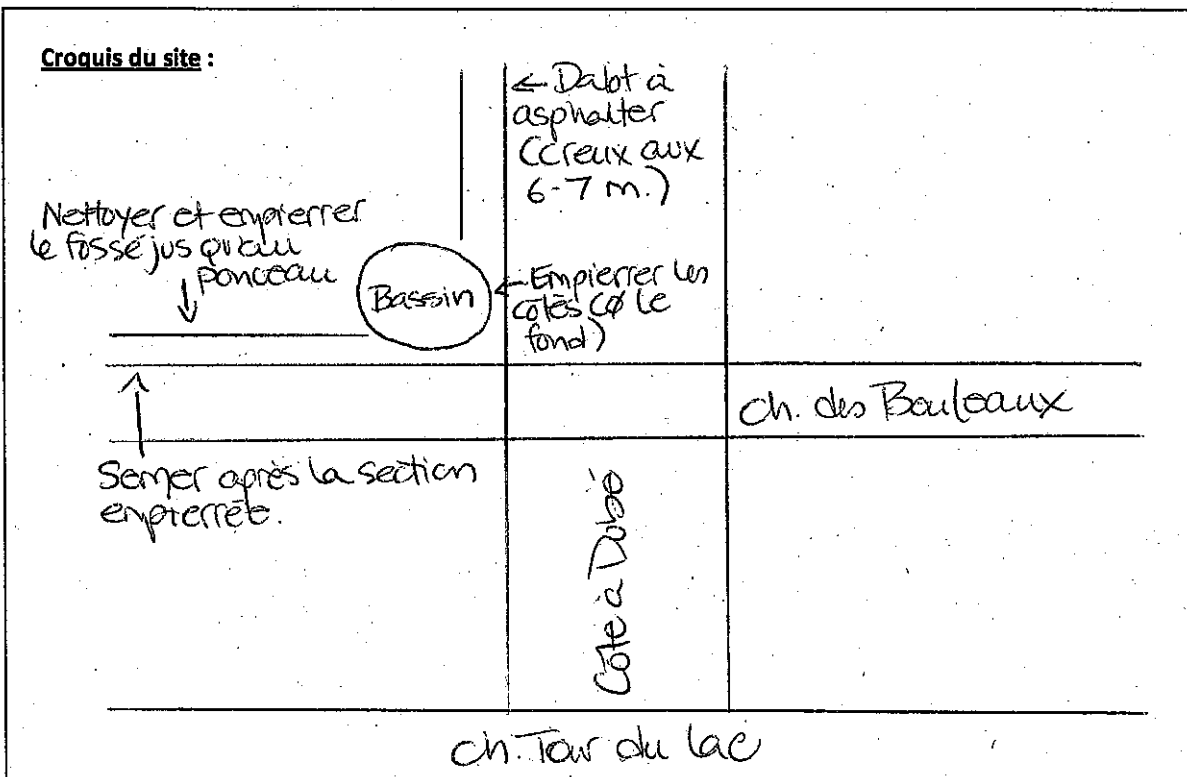 Croquis du site :
← Dalot à
asphalter
(creux aux
6-7 m.)
Nettoyer et empierrer
le fossé jusqu'au
ponceau
Bassin
← Empierrer les
côtés (Ø le
fond)
ch. des Bouleaux
Semer après la section
empierrée.
Côte à Dubé
ch. Tour du lac